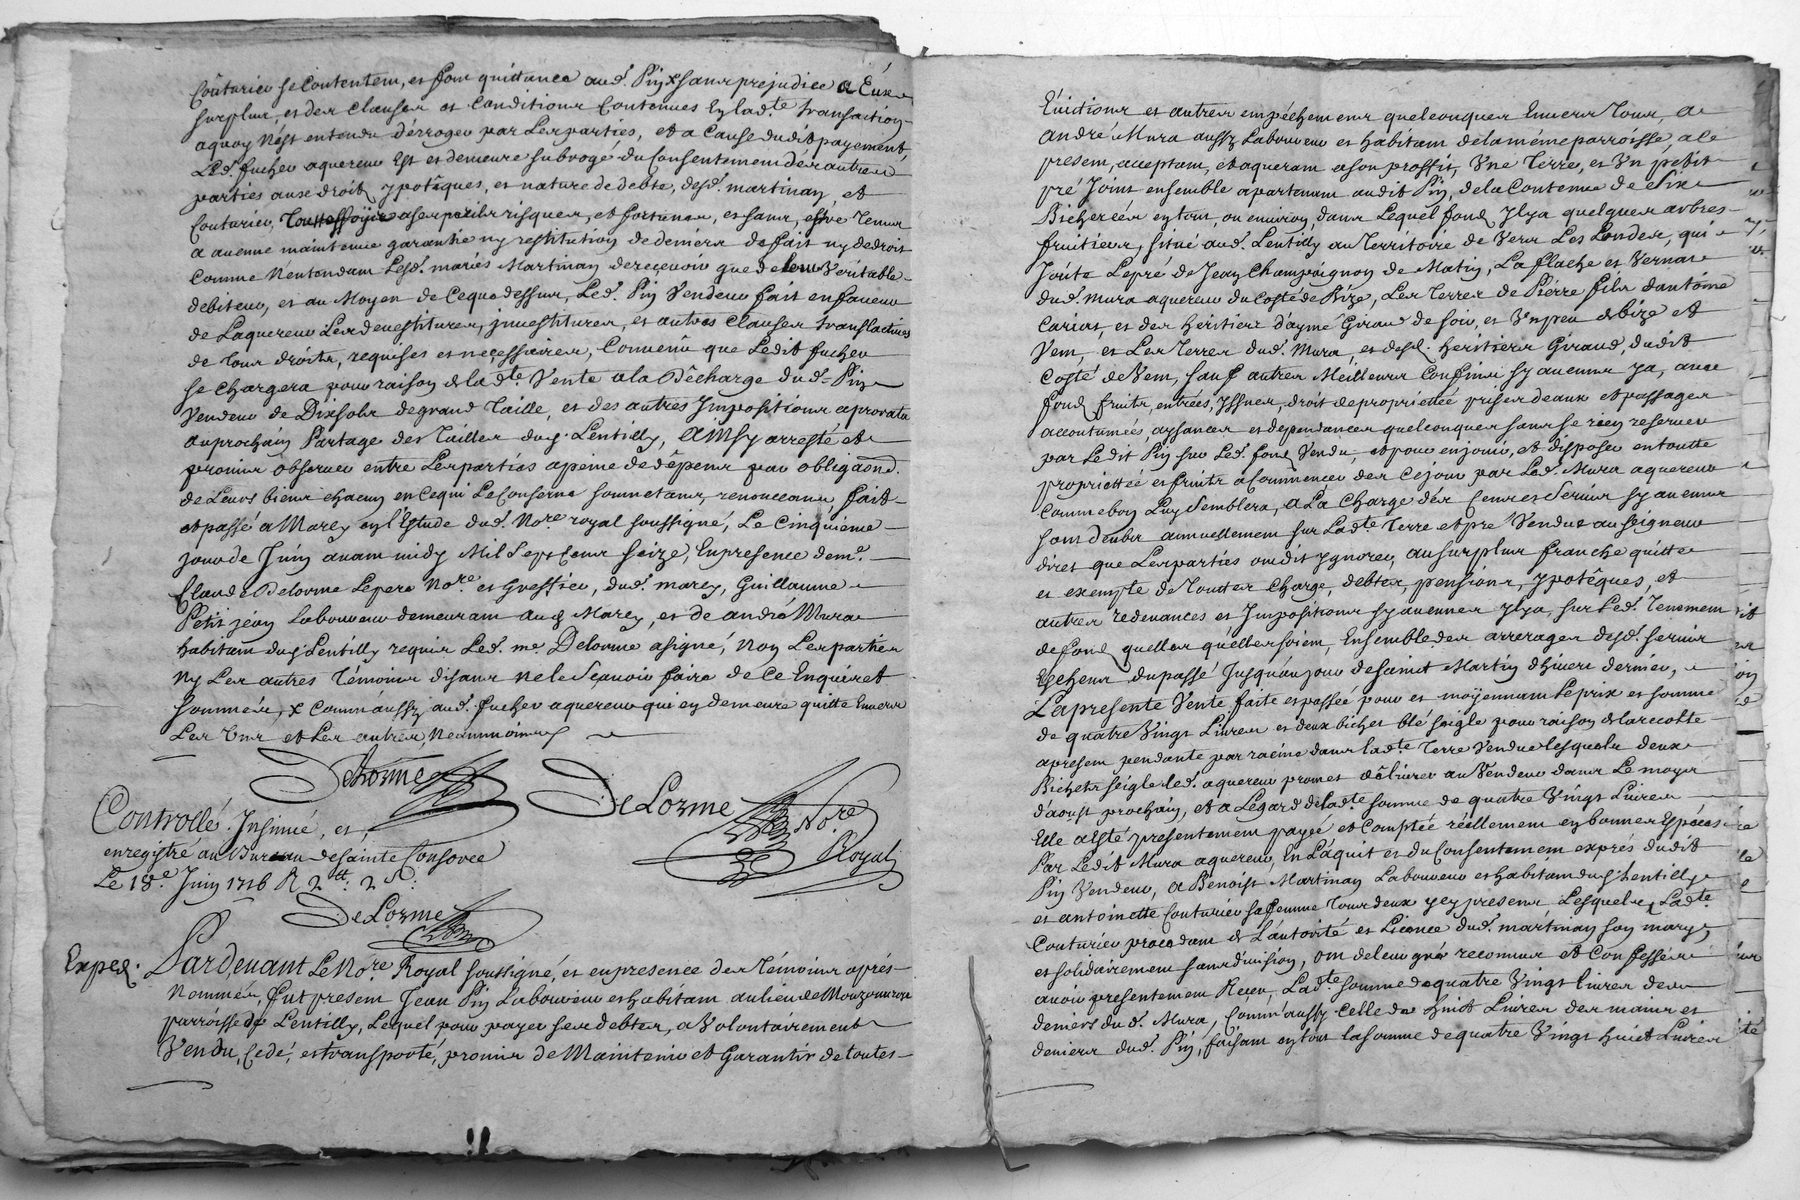 Couturier se Contentent, et font quittance aud. Pin x sans prejudice a Eux
surplus, et des clauses et Conditions Contenues En lad.te transaction
aquoy N'est entendu dérroger par Les parties, et a Cause dudit payement,
Led. fucher aquereur Est et demeure subrogé du Consentement desd. autres
parties aux droits ypotêques, et nature de debte, desd. martinan, et
Couturier, a ses perils risques, et fortunes, et sans, estre Tenus
a aucune maintenue garantie ny restitution de deniers de fait ny de droit
Comme N'entendant Lesd. mariés Martinan de reçevoir que de leur Véritable
debiteur, et au Moyen de Ce que dessus, Led. Pin Vendeur fait en faveur
de Laquereur Les devestitures, jnvestitures, et autres Clauses translatives
de Tous droits, requises et neçessaires, Convenû que Ledit fucher
se Chargera pour raison de lad.te Vente a la Décharge dud. Pin
Vendeur de Dix sols de grand Taille, et des autres Jmpositions aprorata
au prochain Partage des Tailles dud. Lentilly, Ainsy arresté et
promis observer entre Les parties apeine de dêpens par obligaõnd.
de Leurs biens chacun en Ce qui Le Conserne soumetans renonceans fait
et passé a Marcy en l'Estude dud. No.re royal soussigné, Le Cinquiéme
jour de Juin avant midy Mil Sept Cens seize, En presence de m.e
Claude Delorme Le pere No.re et Greffier, dud. marcy, Guillaume
Petit jéan Laboureur demeurant aud Marcy, et de andré Mura
habitant dud. Lentilly requis Led. me Delorme a signé, Non Les parties
Ny Les autres Témoins disans ne le Sçavoir faire de Ce Enquis et
Sommés, x Comm'aussy aud. fucher aquereur qui en demeure quitte Envers
Les Uns et Les autres, Neanmoins
Delorme DeLorme No.re Royal
Controllé. Insinué, et
enregistré au Bureau de sainte Consorce
Le 18.e Juin 1716 R 2tt: 2 s:
DeLorme
Exped. Pardevant Le No.re Royal soussigné, et en presence des Témoins aprés
Nommés, fut present Jean Pin Laboureur et habitant au lieu de Mouzouroux
parroisse de Lentilly, Lequel pour payer ses debtes, a Volontairement
Vendu, Cedé, et transporté, promis de Maintenir et Garantir de toutes
Évictions et autres empéchemens quelconques Envers Tous, A
André Mura aussy Laboureur et habitant de la méme parroisse, a Ce
present, acceptant, et aquerant a son proffit, Une Terre, et Un petit
pré Joint ensemble apartenant audit Pin, de la Contenue de Six
Bicherées en tout, ou environ, dans Lequel fond Jl y a quelques arbres
fruitiers, situé aud. Lentilly au Territoire de Vers Les Londes, qui
Joûte Le pré de Jean Champaignon de Matin, La flache et Vernas
dud. Mura aquereur du Costé de Bize, Les Terres de Piérre fils dantoine
Cariot, et des héritiers d'aymé Giraud de soir, et Un peu de bize et
Vent, et Les Terres dud. Mura, et desd. heritiers Giraud, dudit
Costé de Vent, sauf autres Meilleurs Confins sy aucuns y a, avec
fond fruits, entrées, Yssues, droit de proprietté prises deaux et passages
accoutumés, aysances et dependances quelconques sans se rien reserver
par Ledit Pin sur Led. fond Vendu, et pour en jouir, et disposer en toutte
propriettée et fruits a Commencer des Ce jour par Led. Mura aquereur
Comme bon Luy Semblera, A La Charge des Cens et Servis sy aucuns
sont deubs annuellement sur Lad.te Terre et pré Vendus au seigneur
direct que Les parties ont dit ygnorer, au surplus franche quitte
et exempte de Touttes Charge, debtes, pensions, ypotêques, et
autres redevances et Jmpositions sy aucunes Yl y a, sur Led. Tenement
de fond quelles qu'elles soient, Ensemble des arrerages desd. servis
Echeus du passé Jusqu'au jour de saint Martin d'hiver dernier,
La presente Vente faite et passée pour et moyennant Le prix et somme
de quatre Vingt Livres et deux bichet blé seigle pour raison de la recolte
apresent pendante par racine dans lad.te Terre Vendue lesquels deux
Bichets seigle led. aquereur promet délivrer au Vendeur dans Le moys
d'aoust prochain, et a L'égard de lad.te somme de quatre Vingt Livres
Elle a Esté presentement payée et Comptée réellement en bonnes Espéces
Par Ledit Mura aquereur, En L'aquit et du Consentement exprés dudit
Pin Vendeur, A Benoist Martinan Laboureur et habitant dud Lentilly
et antoinette Couturier sa femme Tous deux y cy presens Lesquels, Lad.te
Couturier procedant de L'autorité et Licence dud. martinan son mary,
et solidairement sans division, ont de leur gré reconnus et Confessé
avoir presentement Reçeu, Lad.te somme de quatre Vingt livres des
deniers dud. Mura, Comm'aussy Celle de huit Livres des mains et
deniers dud. Pin, faisant en tout la somme de quatre Vingt huit Livres